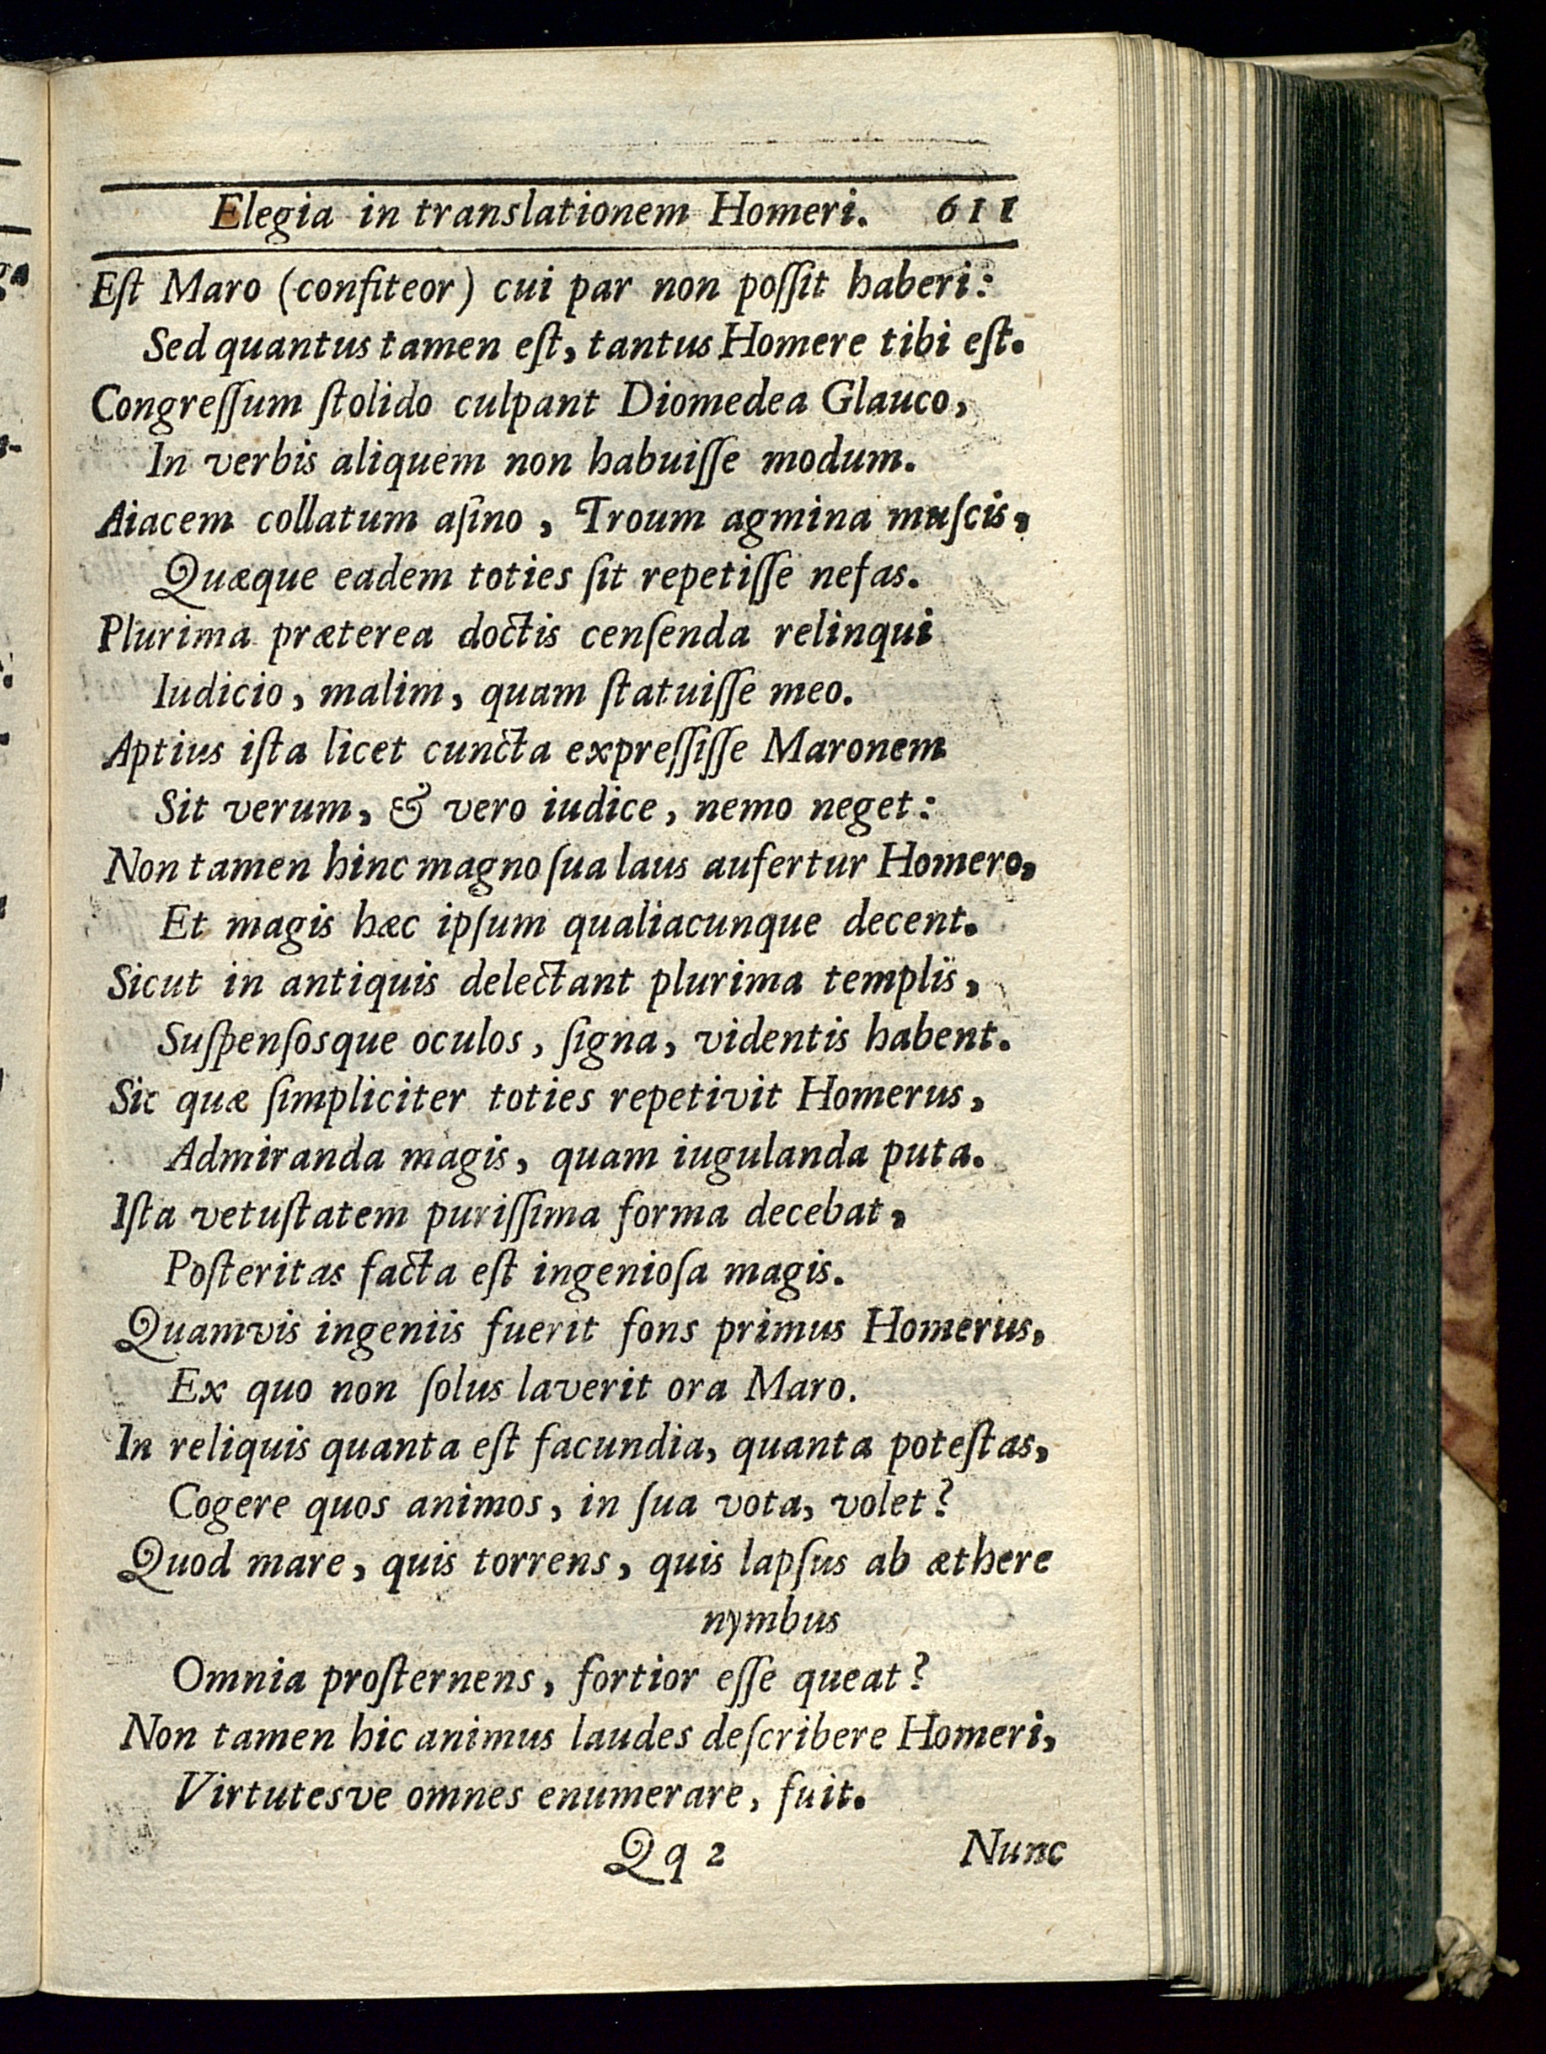 Elegia in translationem Homeri. 611
Eſt Maro (confiteor) cui par non poſſit haberi:
Sed quantus tamen eſt, tantus Homere tibi eſt.
Congreſſum ſtolido culpant Diomedea Glauco,
In verbis aliquem non habuiſſe modum.
Aiacem collatum aſino, Troum agmina muſcis,
Quæque eadem toties ſit repetiſſe nefas.
Plurima præterea doctis cenſenda relinqui
Iudicio, malim, quam ſtatuiſſe meo.
Aptius iſta licet cuncta expreſſiſſe Maronem
Sit verum, & vero iudice, nemo neget:
Non tamen hinc magno ſua laus aufertur Homero,
Et magis hæc ipſum qualiacunque decent.
Sicut in antiquis delectant plurima templis,
Suſpenſosque oculos, ſigna, videntis habent.
Sic quæ ſimpliciter toties repetivit Homerus,
Admiranda magis, quam iugulanda puta.
Iſta vetuſtatem puriſſima forma decebat,
Poſteritas facta eſt ingenioſa magis.
Quamvis ingeniis fuerit fons primus Homerus,
Ex quo non ſolus laverit ora Maro.
In reliquis quanta eſt facundia, quanta poteſtas,
Cogere quos animos, in ſua vota, volet?
Quod mare, quis torrens, quis lapſus ab æthere
nymbus
Omnia proſternens, fortior eſſe queat?
Non tamen hic animus laudes deſcribere Homeri,
Virtutesve omnes enumerare, fuit.
Qq 2 Nunc